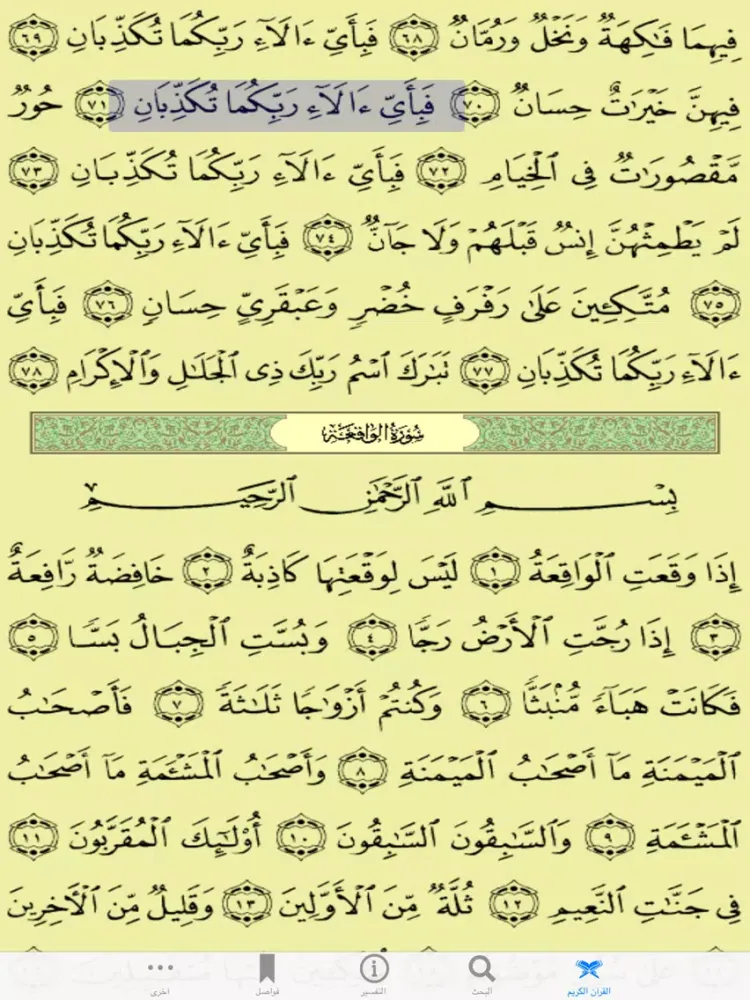 فِيهِمَا فَٰكِهَةٌ وَنَخْلٌ وَرُمَّانٌ ٦٨ فَبِأَيِّ ءَالَآءِ رَبِّكُمَا تُكَذِّبَانِ ٦٩
فِيهِنَّ خَيْرَٰتٌ حِسَانٌ ٧٠ فَبِأَيِّ ءَالَآءِ رَبِّكُمَا تُكَذِّبَانِ ٧١ حُورٌ
مَّقْصُورَٰتٌ فِي ٱلْخِيَامِ ٧٢ فَبِأَيِّ ءَالَآءِ رَبِّكُمَا تُكَذِّبَانِ ٧٣
لَمْ يَطْمِثْهُنَّ إِنسٌ قَبْلَهُمْ وَلَا جَآنٌّ ٧٤ فَبِأَيِّ ءَالَآءِ رَبِّكُمَا تُكَذِّبَانِ
٧٥ مُتَّكِـِٔينَ عَلَىٰ رَفْرَفٍ خُضْرٍ وَعَبْقَرِيٍّ حِسَانٍ ٧٦ فَبِأَيِّ
ءَالَآءِ رَبِّكُمَا تُكَذِّبَانِ ٧٧ تَبَٰرَكَ ٱسْمُ رَبِّكَ ذِي ٱلْجَلَٰلِ وَٱلْإِكْرَامِ ٧٨
سُورَةُ الْوَاقِعَةِ
بِسْمِ ٱللَّهِ ٱلرَّحْمَٰنِ ٱلرَّحِيمِ
إِذَا وَقَعَتِ ٱلْوَاقِعَةُ ١ لَيْسَ لِوَقْعَتِهَا كَاذِبَةٌ ٢ خَافِضَةٌ رَّافِعَةٌ
٣ إِذَا رُجَّتِ ٱلْأَرْضُ رَجًّا ٤ وَبُسَّتِ ٱلْجِبَالُ بَسًّا ٥
فَكَانَتْ هَبَآءً مُّنۢبَثًّا ٦ وَكُنتُمْ أَزْوَٰجًا ثَلَٰثَةً ٧ فَأَصْحَٰبُ
ٱلْمَيْمَنَةِ مَآ أَصْحَٰبُ ٱلْمَيْمَنَةِ ٨ وَأَصْحَٰبُ ٱلْمَشْـَٔمَةِ مَآ أَصْحَٰبُ
ٱلْمَشْـَٔمَةِ ٩ وَٱلسَّٰبِقُونَ ٱلسَّٰبِقُونَ ١٠ أُو۟لَٰٓئِكَ ٱلْمُقَرَّبُونَ ١١
فِي جَنَّٰتِ ٱلنَّعِيمِ ١٢ ثُلَّةٌ مِّنَ ٱلْأَوَّلِينَ ١٣ وَقَلِيلٌ مِّنَ ٱلْءَاخِرِينَ
القران الكريم
البحث
التفسير
فواصل
اخرى